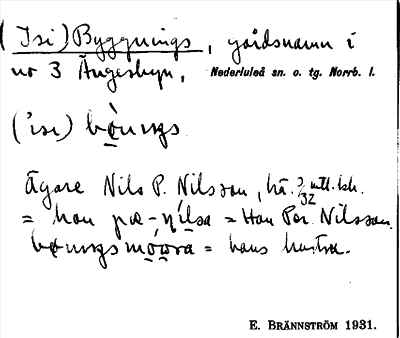 (Isi) Byggnings, gårdsnamn i
nr 3 Ängesbyn, Nederluleå sn. o. tg. Norrb. l.
('isi) bo̱̍nıngs
Ägare Nils P. Nilsson, hä. 3/32 mtl. kr.
= han pæ-nı̍lsa = Han Per Nilsson.
mo̱o̱ra = hans hustru.
E. BRÄNNSTRÖM 1931.